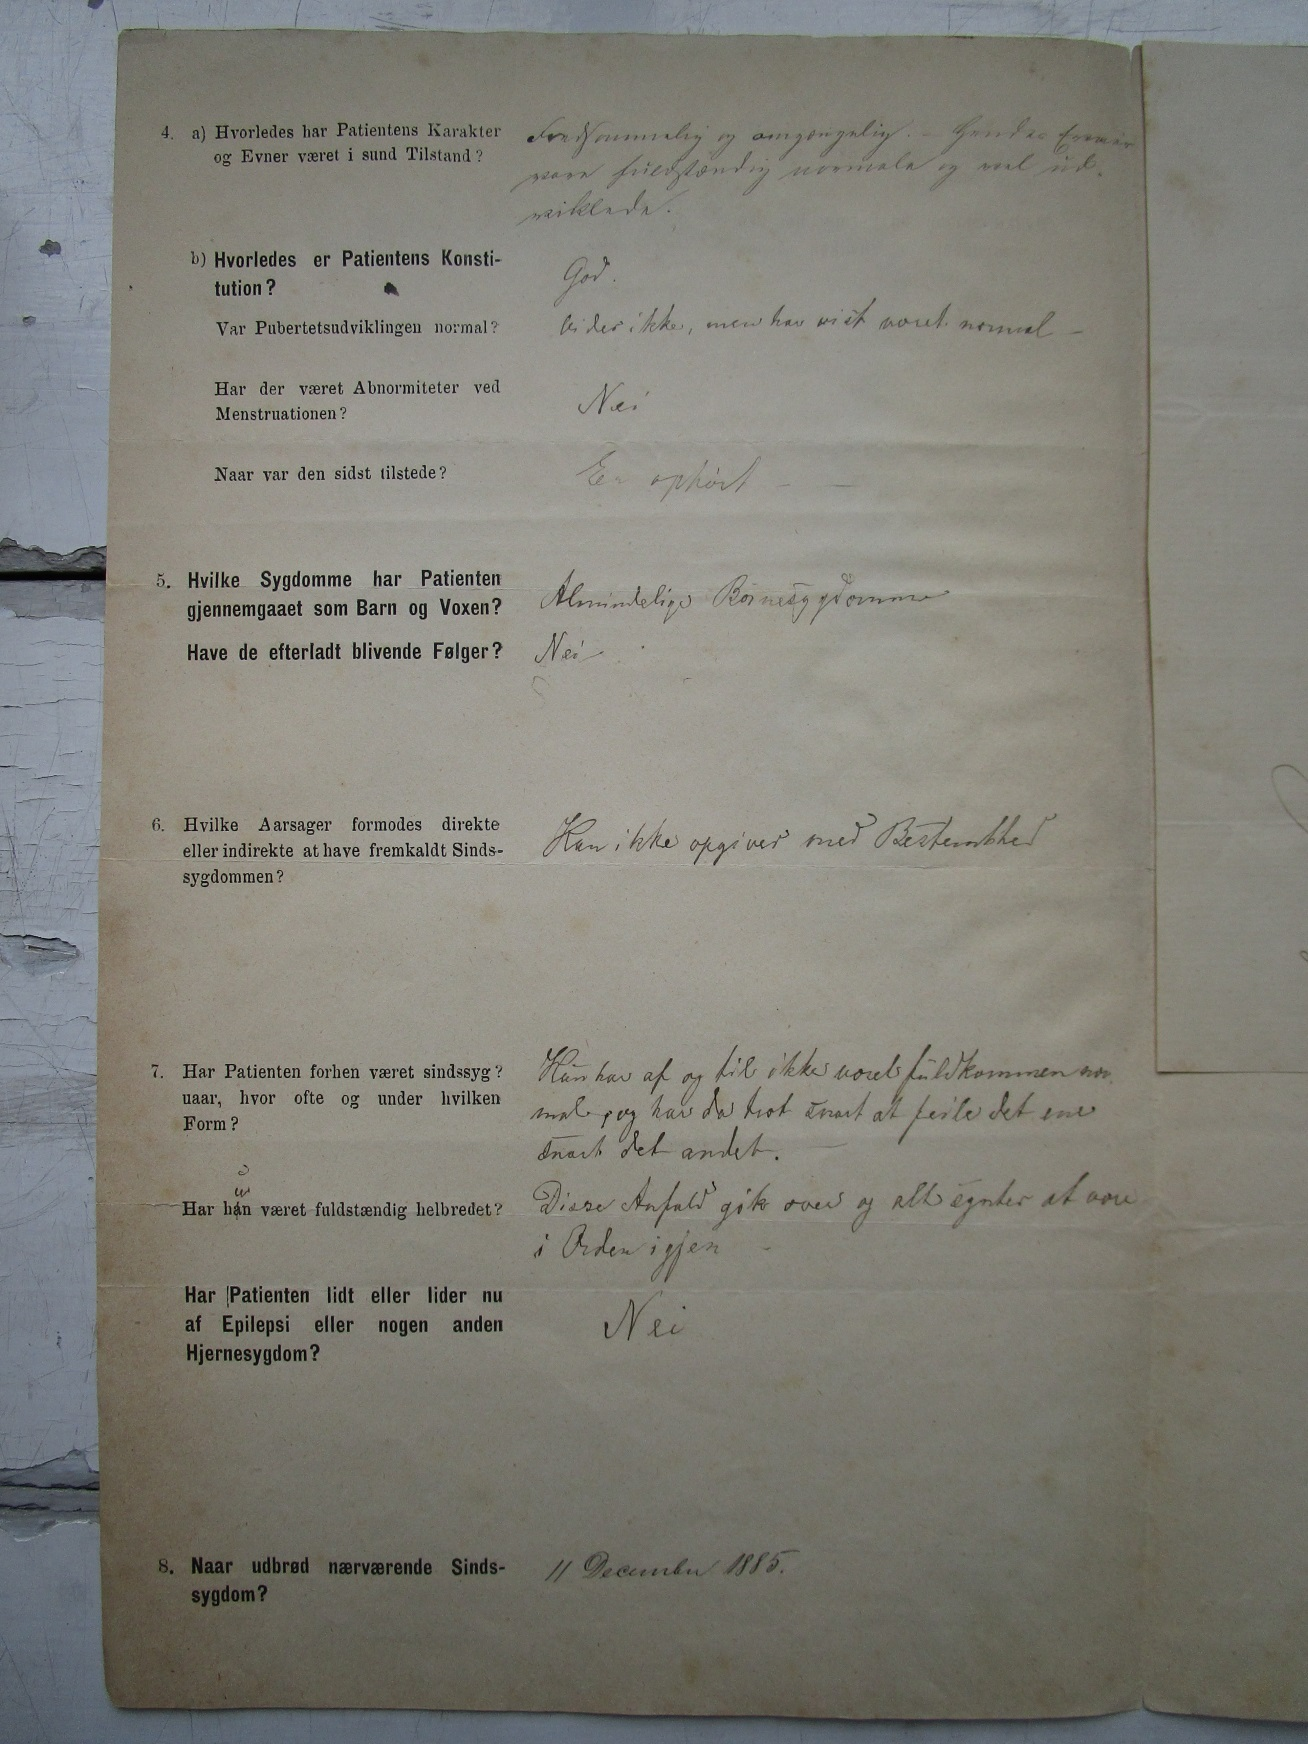 4. a) Hvorledes har Patientens Karakter
og Evner været i sund Tilstand?
Fredsommelig og omgængelig. – Hendes Evner
vare fuldstændig normale og vel ud-
viklede.
b) Hvorledes er Patientens Konsti-
tution?
God.
Var Pubertetsudviklingen normal?
ikke, men har vist været normal –
Har der været Abnormiteter ved
Menstruationen?
Nei
Naar var den sidst tilstede?
Er ophørt – –
5. Hvilke Sygdomme har Patienten
gjennemgaaet som Barn og Voxen?
Almindelige Børnesygdomme
Have de efterladt blivende Følger?
Nei
6. Hvilke Aarsager formodes direkte
eller indirekte at have fremkaldt Sinds-
sygdommen?
Kan ikke opgives med Bestemthed
7. Har Patienten forhen været sindssyg?
naar, hvor ofte og under hvilken
Form?
Hun har af og til ikke været fuldkommen nor-
mal, og har da trot snart at feile det ene
snart det andet.
Har han været fuldstændig helbredet?
u
Disse Anfald gik over og alt syntes at være
i Orden igjen –
Har Patienten lidt eller lider nu
af Epilepsi eller nogen anden
Hjernesygdom?
Nei
8. Naar udbrød nærværende Sinds-
sygdom?
11 December 1885.